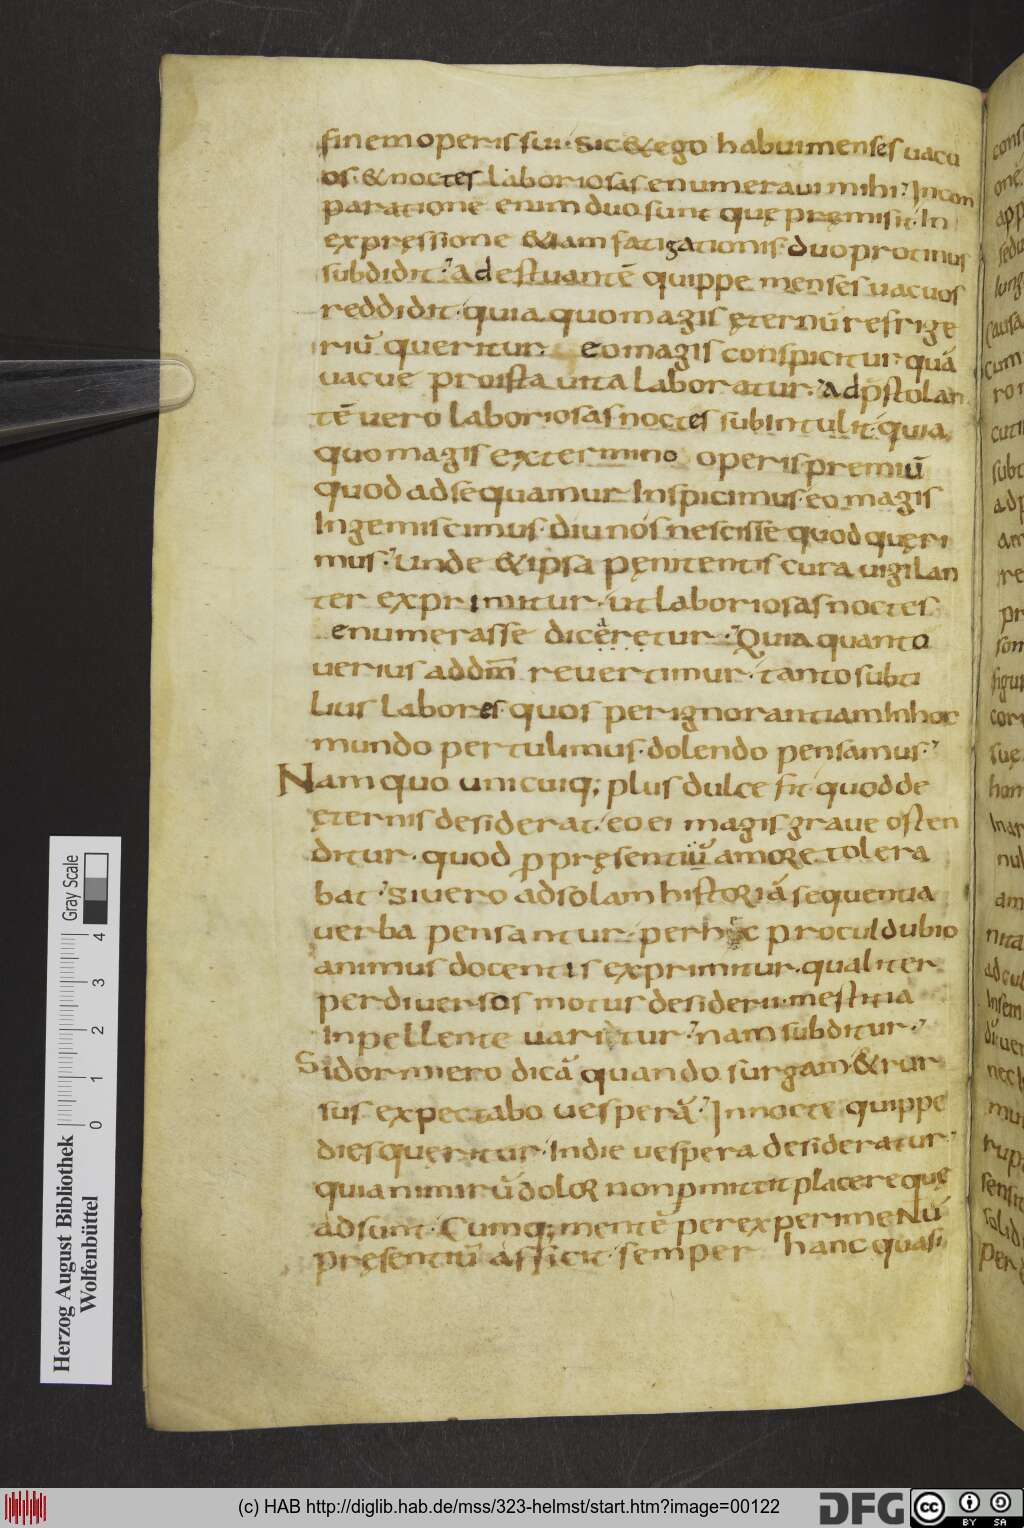 finem operis sui· Sic & ego habui menses uacu
os· & noctes laboriosas enumeraui mihi· In con
paratione enim duo sunt quę pręmisit· In
expręssione &iam fatigationis· duo protinus
subdidit· Ad estuantē quippe menses uacuos
reddidit· quia quo magis ęternū refrige
riū queritur eo magis conspicitur quā
uacue pro ista uita laboratur· Ad pstolan
tē uero laboriosas noctes subintulit· quia
quo magis extermino operis premiū
quod adsequamur Inspicimus· eo magis
Ingemiscimus· diu nos nescisse quod quęri
mus· Unde & ipsa pęnitentis cura uigilan
ter exprimitur· ut laboriosas noctes
enumerasse diceretur· Quia quanto
uerius ad dm̄ reuertimur· tanto subti
lius labores quos per ignorantiam In hoc
mundo pertulimus· dolendo pensamus·
Nam quo unicuiq; plus dulce fit· quod de
ęternis desiderat· eo ei magis graue osten
ditur· quod p pręsentiū amore tolera
bat· Si uero ad solam historiā sequentia
uerba pensantur· per hęc procul dubio
animus docentis exprimitur· qualiter
per diuersos motus desiderii· mestitia
Inpellente uarietur· nam subditur·
Si dormiero dicā quando surgam· & rur
sus expectabo uesperā· In nocte quippe
dies queritur· In die uespera desideratur·
quia nimirū dolor non pmittit placere quę
adsunt· Cumq; mentē per experimentū
pręsentiū afficit· semper hanc quasi
Gray Scale
4
3
2
1
0
Herzog August Bibliothek
Wolfenbüttel
(c) HAB http://diglib.hab.de/mss/323-helmst/start.htm?image=00122
DFG
cc
BY SA